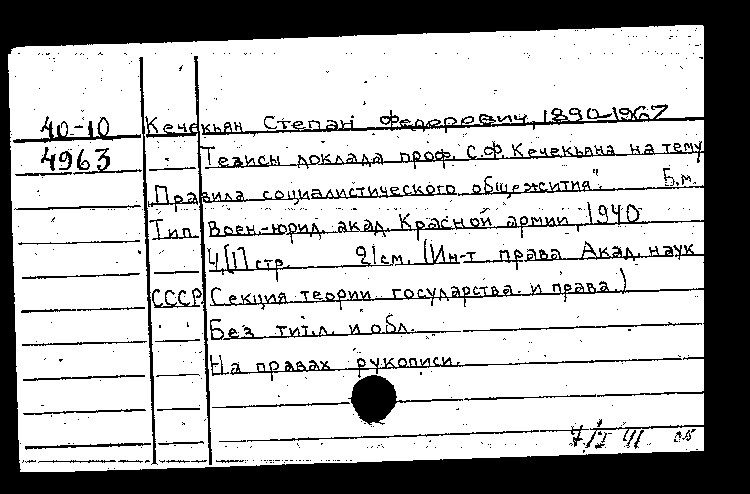 40-10 Кечекьян, Степан Федорович, 1890-1967
4963 Тезисы доклада проф. С.Ф. Кечекьяна на тему
"Правила социалистического общежития". Б.м.
Тип. Воен.-юрид. акад. Красной армии, 1940
4,[1] стр. 21 см. (Ин-т права Акад. наук
СССР. Секция теории государства и права.)
Без тит.л. и обл.
На правах рукописи.
7/I 41